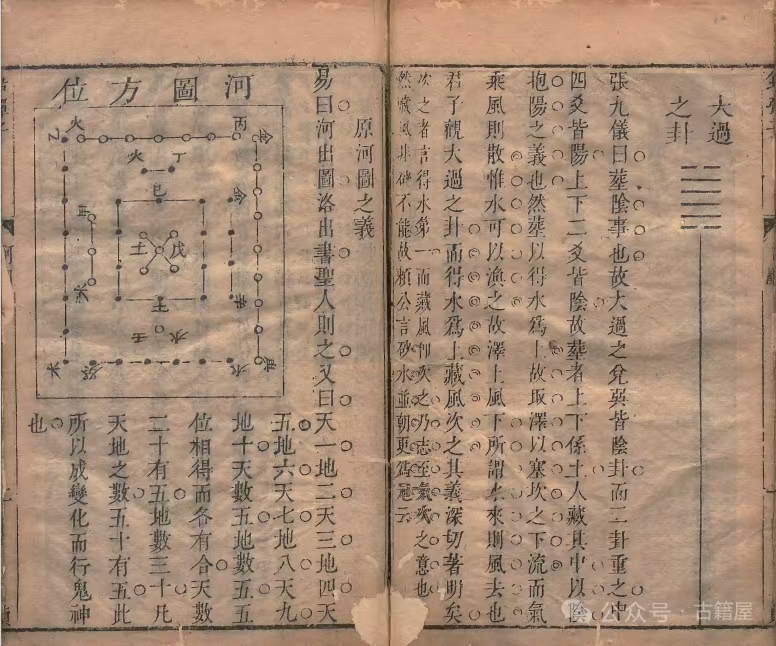 大過
之卦
張九儀曰塟陰事也故大過之兌巽皆陰卦而二卦重之中
四爻皆陽上下二爻皆陰故塟者上下係土人藏其中以陰
抱陽之義也然塟以得水爲上故取澤以塞坎之下流而氣
乘風則散惟水可以漁之故澤上風下所謂水來則風去也
君子觀大過之卦而得水爲上藏風次之其義深切著明矣
次之者言得水第一而藏風卽次之乃志至氣次之意也
然藏風非砂不能故賴公言砂水並朝更爲冠云
原河圖之義
易曰河出圖洛出書聖人則之又曰天一地二天三地四天
五地六天七地八天九
地十天數五地數五五
位相得而各有合天數
二十有五地數三十凡
天地之數五十有五此
所以成變化而行鬼神
也
河圖方位
丙
火
乙
火
丁
巳
土
戊
壬
水
癸
公众号·古籍屋